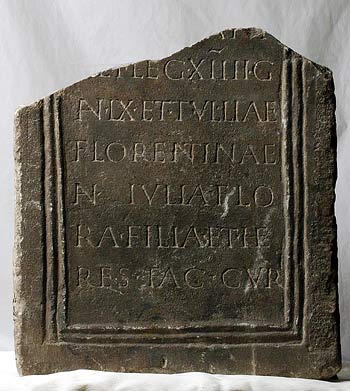 LEG XIIII G
N IX ET TVLLIAE
FLORENTINAE
N IVLIA FLO
RA FILIA ET HE
RES FAC CVR